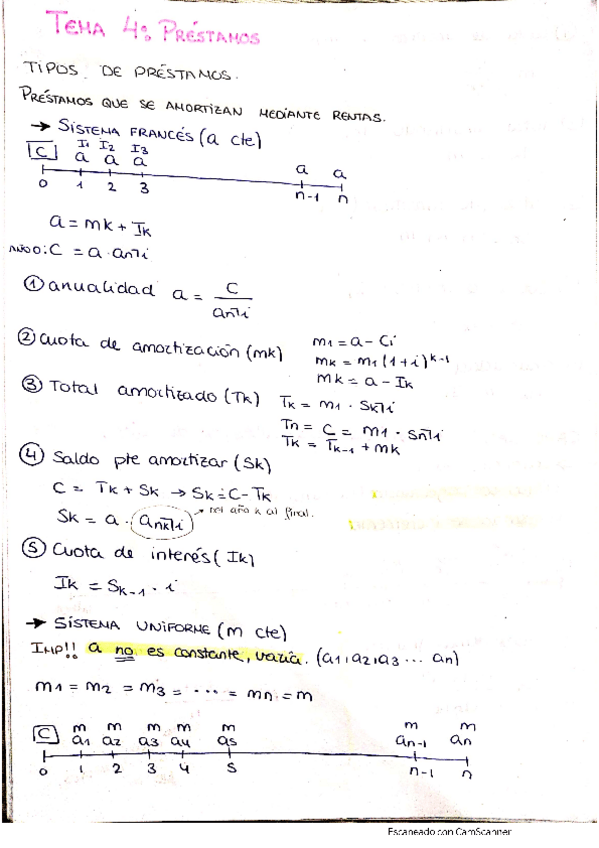 TEMA 4: PRÉSTAMOS
TIPOS DE PRÉSTAMOS.
PRÉSTAMOS QUE SE AMORTIZAN MEDIANTE RENTAS.
→ SISTEMA FRANCÉS (a cte)
I1 I2 I3
C a a a a a
0 1 2 3 n-1 n
a = mk + Ik
AÑO 0: C = a · an¬i
① anualidad a = C / an¬i
② Cuota de amortización (mk) m1 = a - Ci
mk = m1 (1+i)^k-1
mk = a - Ik
③ Total amortizado (Tk) Tk = m1 · Sk¬i
Tn = C = m1 · Sn¬i
Tk = Tk-1 + mk
④ Saldo pte amortizar (Sk)
C = Tk + Sk → Sk = C - Tk
Sk = a · an-k¬i → del año k al final.
⑤ Cuota de interés (Ik)
Ik = Sk-1 · i
→ SISTEMA UNIFORME (m cte)
IMP!! a no es constante, varía. (a1, a2, a3 ... an)
m1 = m2 = m3 = ... = mn = m
m m m m m m m
C a1 a2 a3 a4 a5 an-1 an
0 1 2 3 4 5 n-1 n
Escaneado con CamScanner